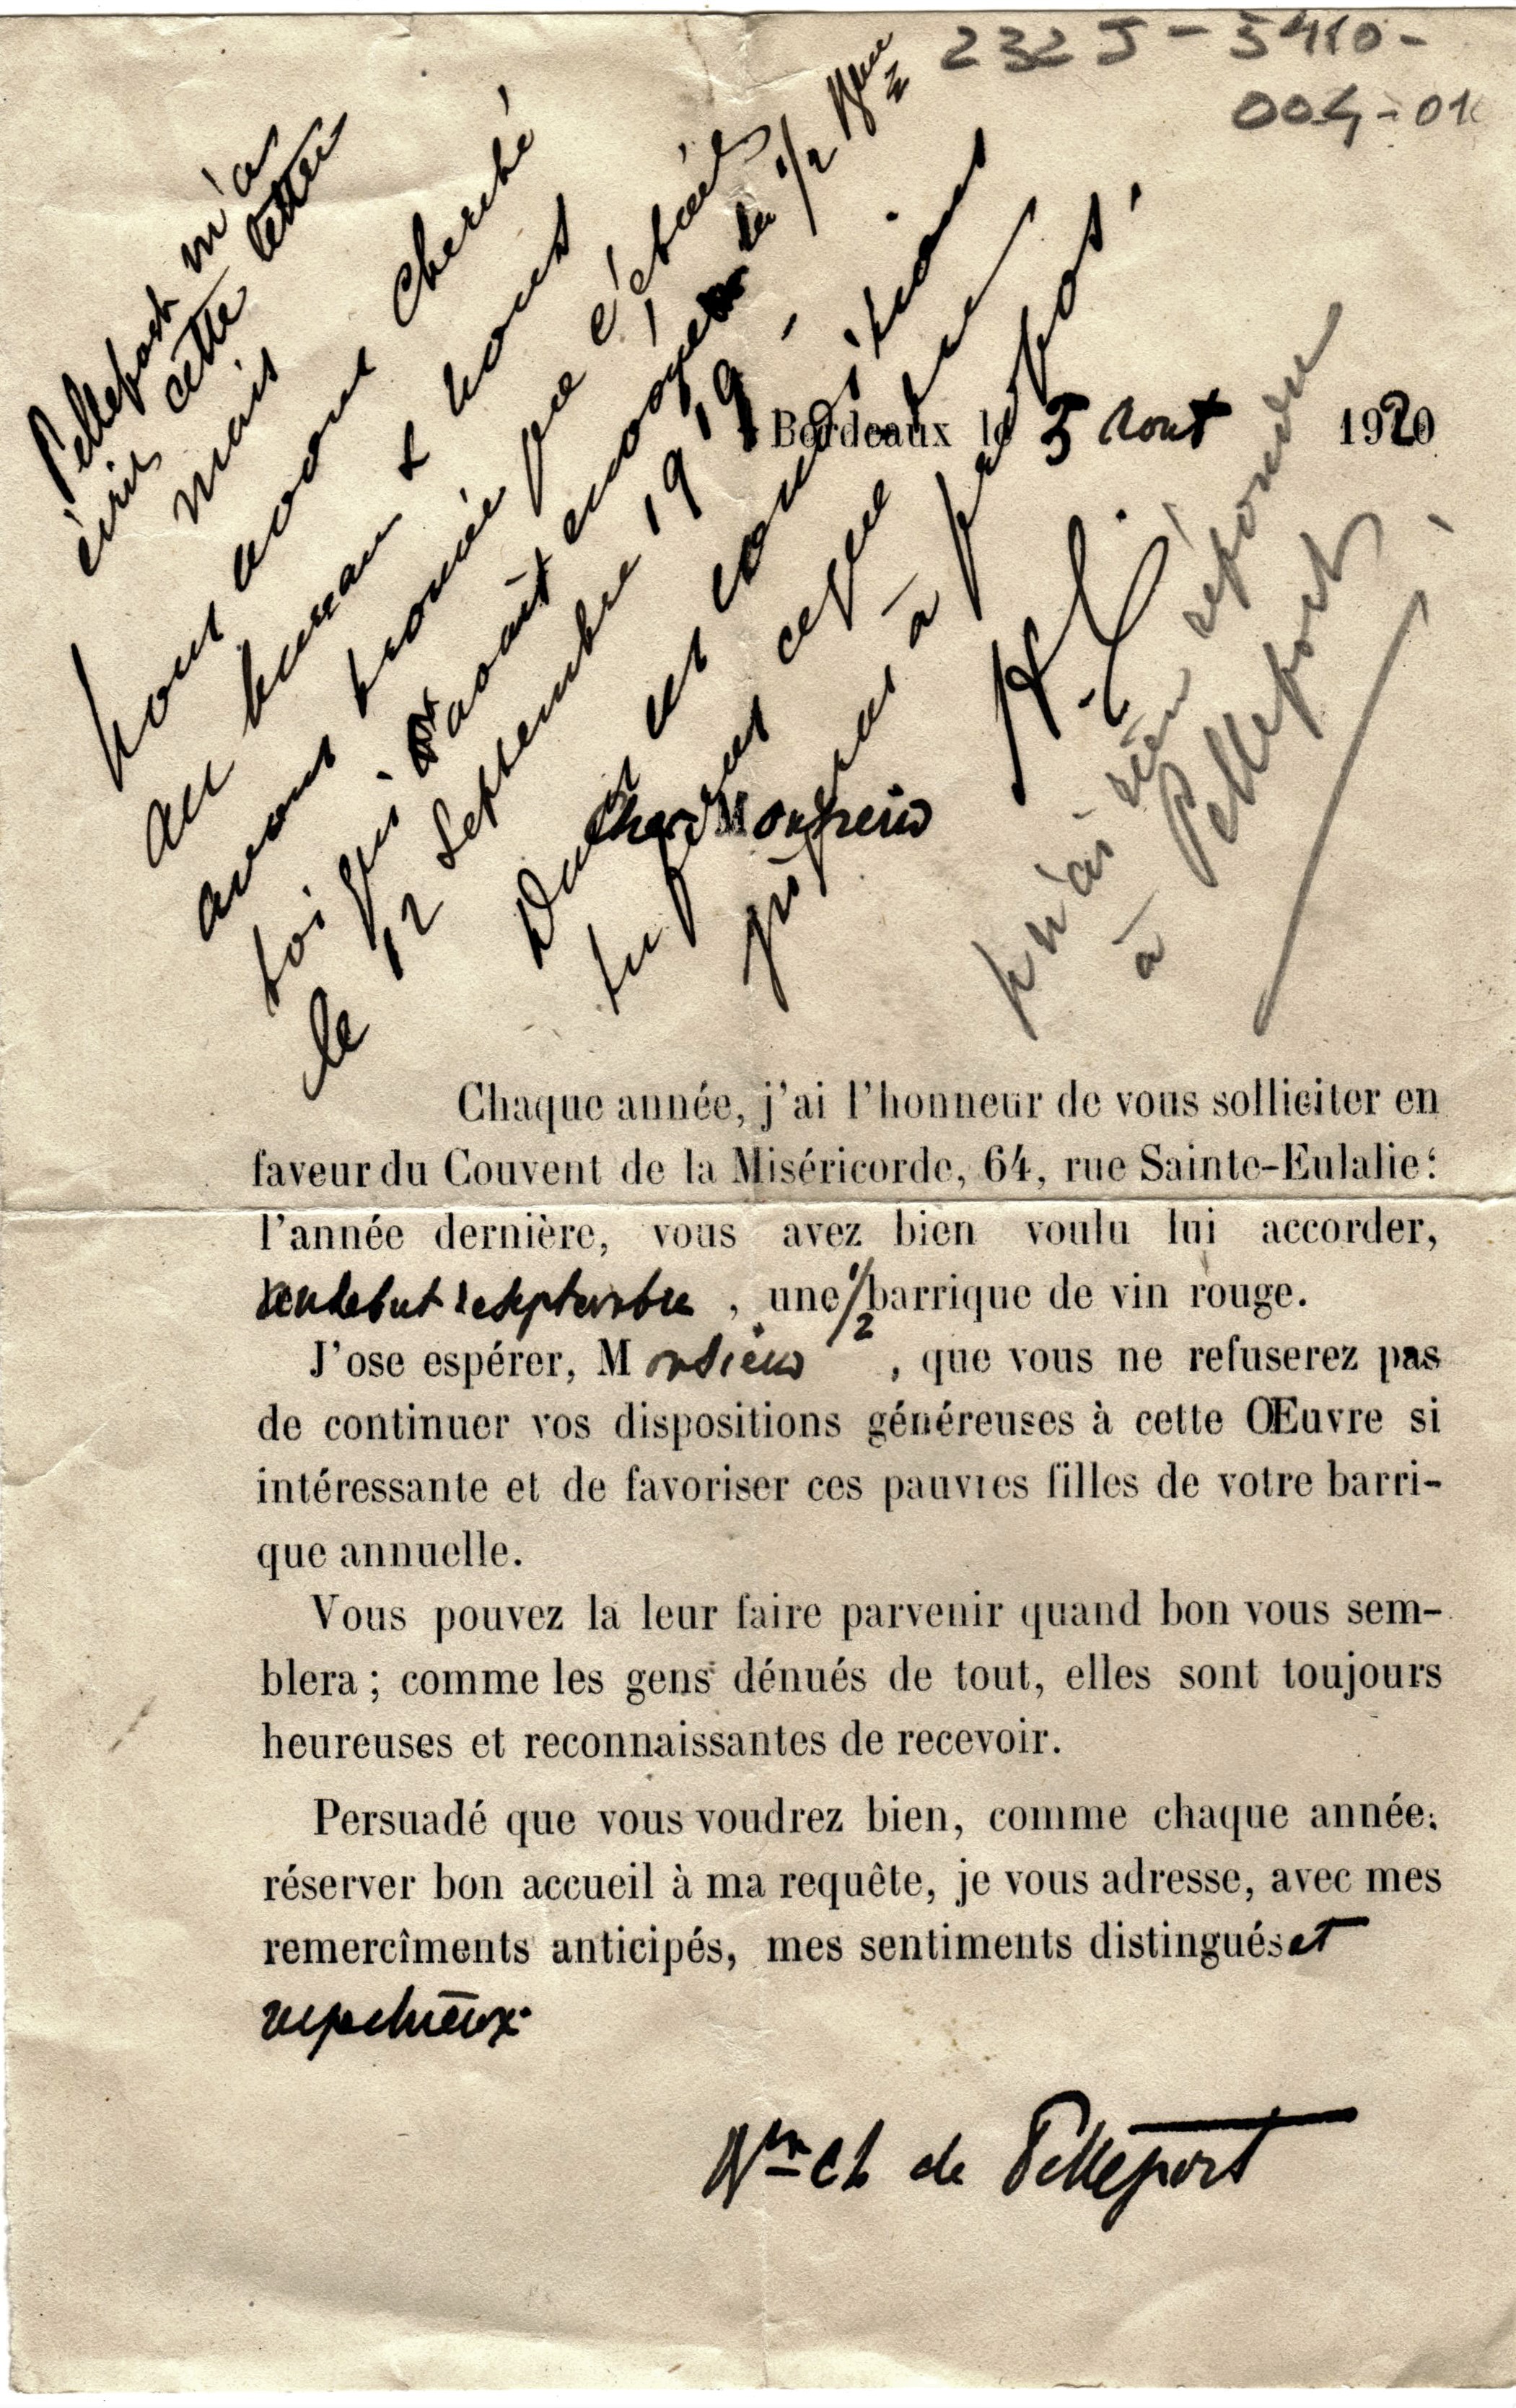 232 J - 5410 -
004 - 01
Pelleport m'a
écrit cette lettre
mais
nous avons cherché
au bureau & nous
avons trouvé que c'était
toi qui avait envoyé la 1/2 Bque
le 12 septembre 1919.
Dans ces conditions
tu peux
à propos.
H. C.
n'ai rien répondu
à Pelleport
Bordeaux le 5 Aout 1920
Cher Monsieur
Chaque année, j'ai l'honneur de vous solliciter en
faveur du Couvent de la Miséricorde, 64, rue Sainte-Eulalie:
l'année dernière, vous avez bien voulu lui accorder,
septembre, une 1/2 barrique de vin rouge.
J'ose espérer, Monsieur, que vous ne refuserez pas
de continuer vos dispositions généreuses à cette Œuvre si
intéressante et de favoriser ces pauvres filles de votre barri-
que annuelle.
Vous pouvez la leur faire parvenir quand bon vous sem-
blera ; comme les gens dénués de tout, elles sont toujours
heureuses et reconnaissantes de recevoir.
Persuadé que vous voudrez bien, comme chaque année,
réserver bon accueil à ma requête, je vous adresse, avec mes
remercîments anticipés, mes sentiments distingués et
respectueux.
Vte Ch de Pelleport